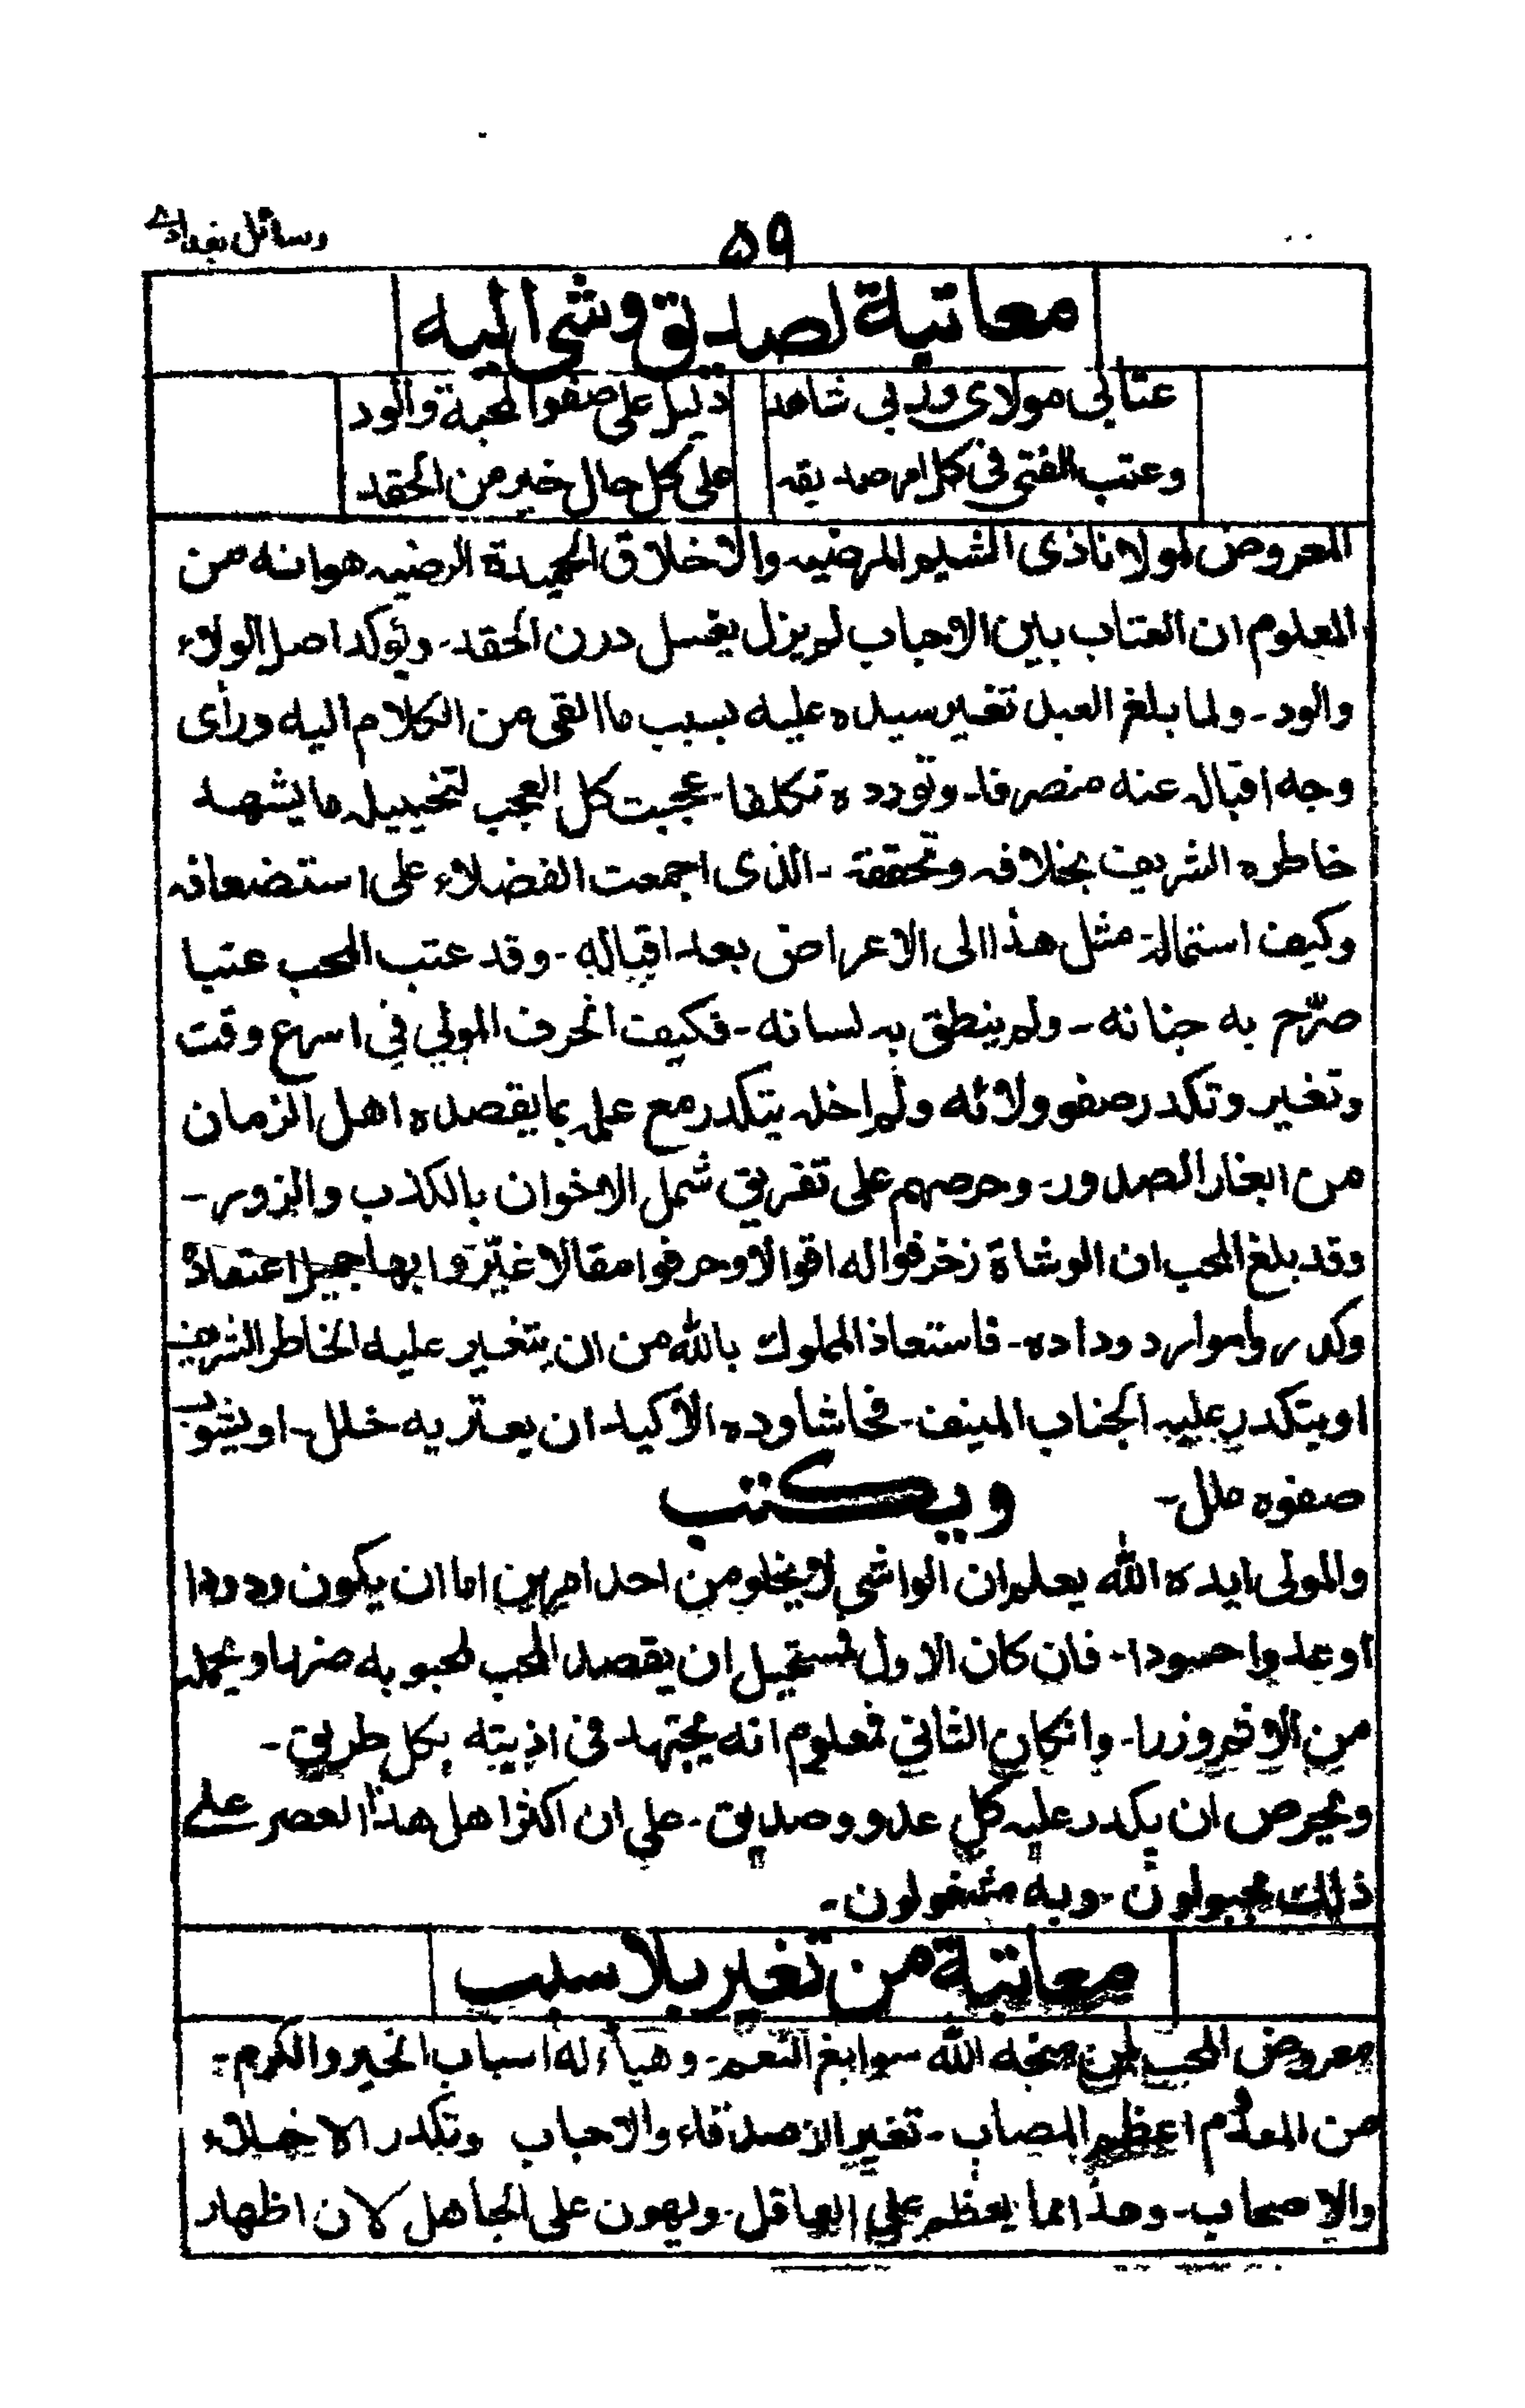 رسائل بغدادي
٥٩
معاتبة لصديق وشى اليه
عتابى مولاى وربى شاهد دليل على صفو المحبة والود
وعتب الفتى فى كل امر صديقه على كل حال خير من الحقد
المعروض لمولانا ذى الشيم المرضيه والاخلاق الحميدة الرضيه هو انه من
المعلوم ان العتاب بين الاحباب لم يزل يغسل درن الحقد - ويؤكد اصل الولاء
والود - ولما بلغ العبد تغير سيده عليه بسبب ما القى من الكلام اليه وراى
وجه اقباله عنه منصرفا - وتودده تكلفا - عجبت كل العجب لتخييله ما يشهد
خاطره الشريف بخلافه وتحققة - الذى اجمعت الفضلاء على استضعافه
وكيف استماله مثل هذا الى الاعراض بعد اقباله - وقد عتب المحب عتبا
صرّح به جنانه - ولم ينطق به لسانه - فكيف انحرف المولي في اسرع وقت
وتغير وتكدر صفو ولائه ولم اخله يتكدر مع علمه بما يقصده اهل الزمان
من ايغار الصدور - وحرصهم على تفريق شمل الاخوان بالكذب والزور -
وقد بلغ المحب ان الوشاة زخرفوا له اقوالا وحرفوا مقالا غيّروا بها جميل اعتماده
وكدروا موارد وداده - فاستعاذ المملوك بالله من ان يتغير عليه الخاطر الشريف
او يتكدر عليه الجناب المنيف - فحاشا وده الأكيد ان يعتريه خلل - او يشوب
صفوه ملل -
ويكتب
والمولى ايده الله يعلم ان الواشي لا يخلو من احد امرين اما ان يكون ودودا
او عدوا حسودا - فان كان الاول فمستحيل ان يقصد المحب لمحبوبه ضررا ويحمله
من الاثم وزرا - وانكان الثاني فمعلوم انه يجتهد فى اذيته بكل طريق -
ويحرص ان يكدر عليه كل عدو وصديق - على ان اكثر اهل هذا العصر على
ذلك مجبولون - وبه مشغولون -
معاتبة من تغير بلا سبب
معروض المحب لمن منحه الله سوابغ النعم - وهيأ له اسباب الخير والكرم -
من المعلوم اعظم المصاب - تغير الاصدقاء والاحباب وتكدر الاخلاء
والاصحاب - وهذا مما يعظم علي العاقل - ويهون على الجاهل لان اظهار